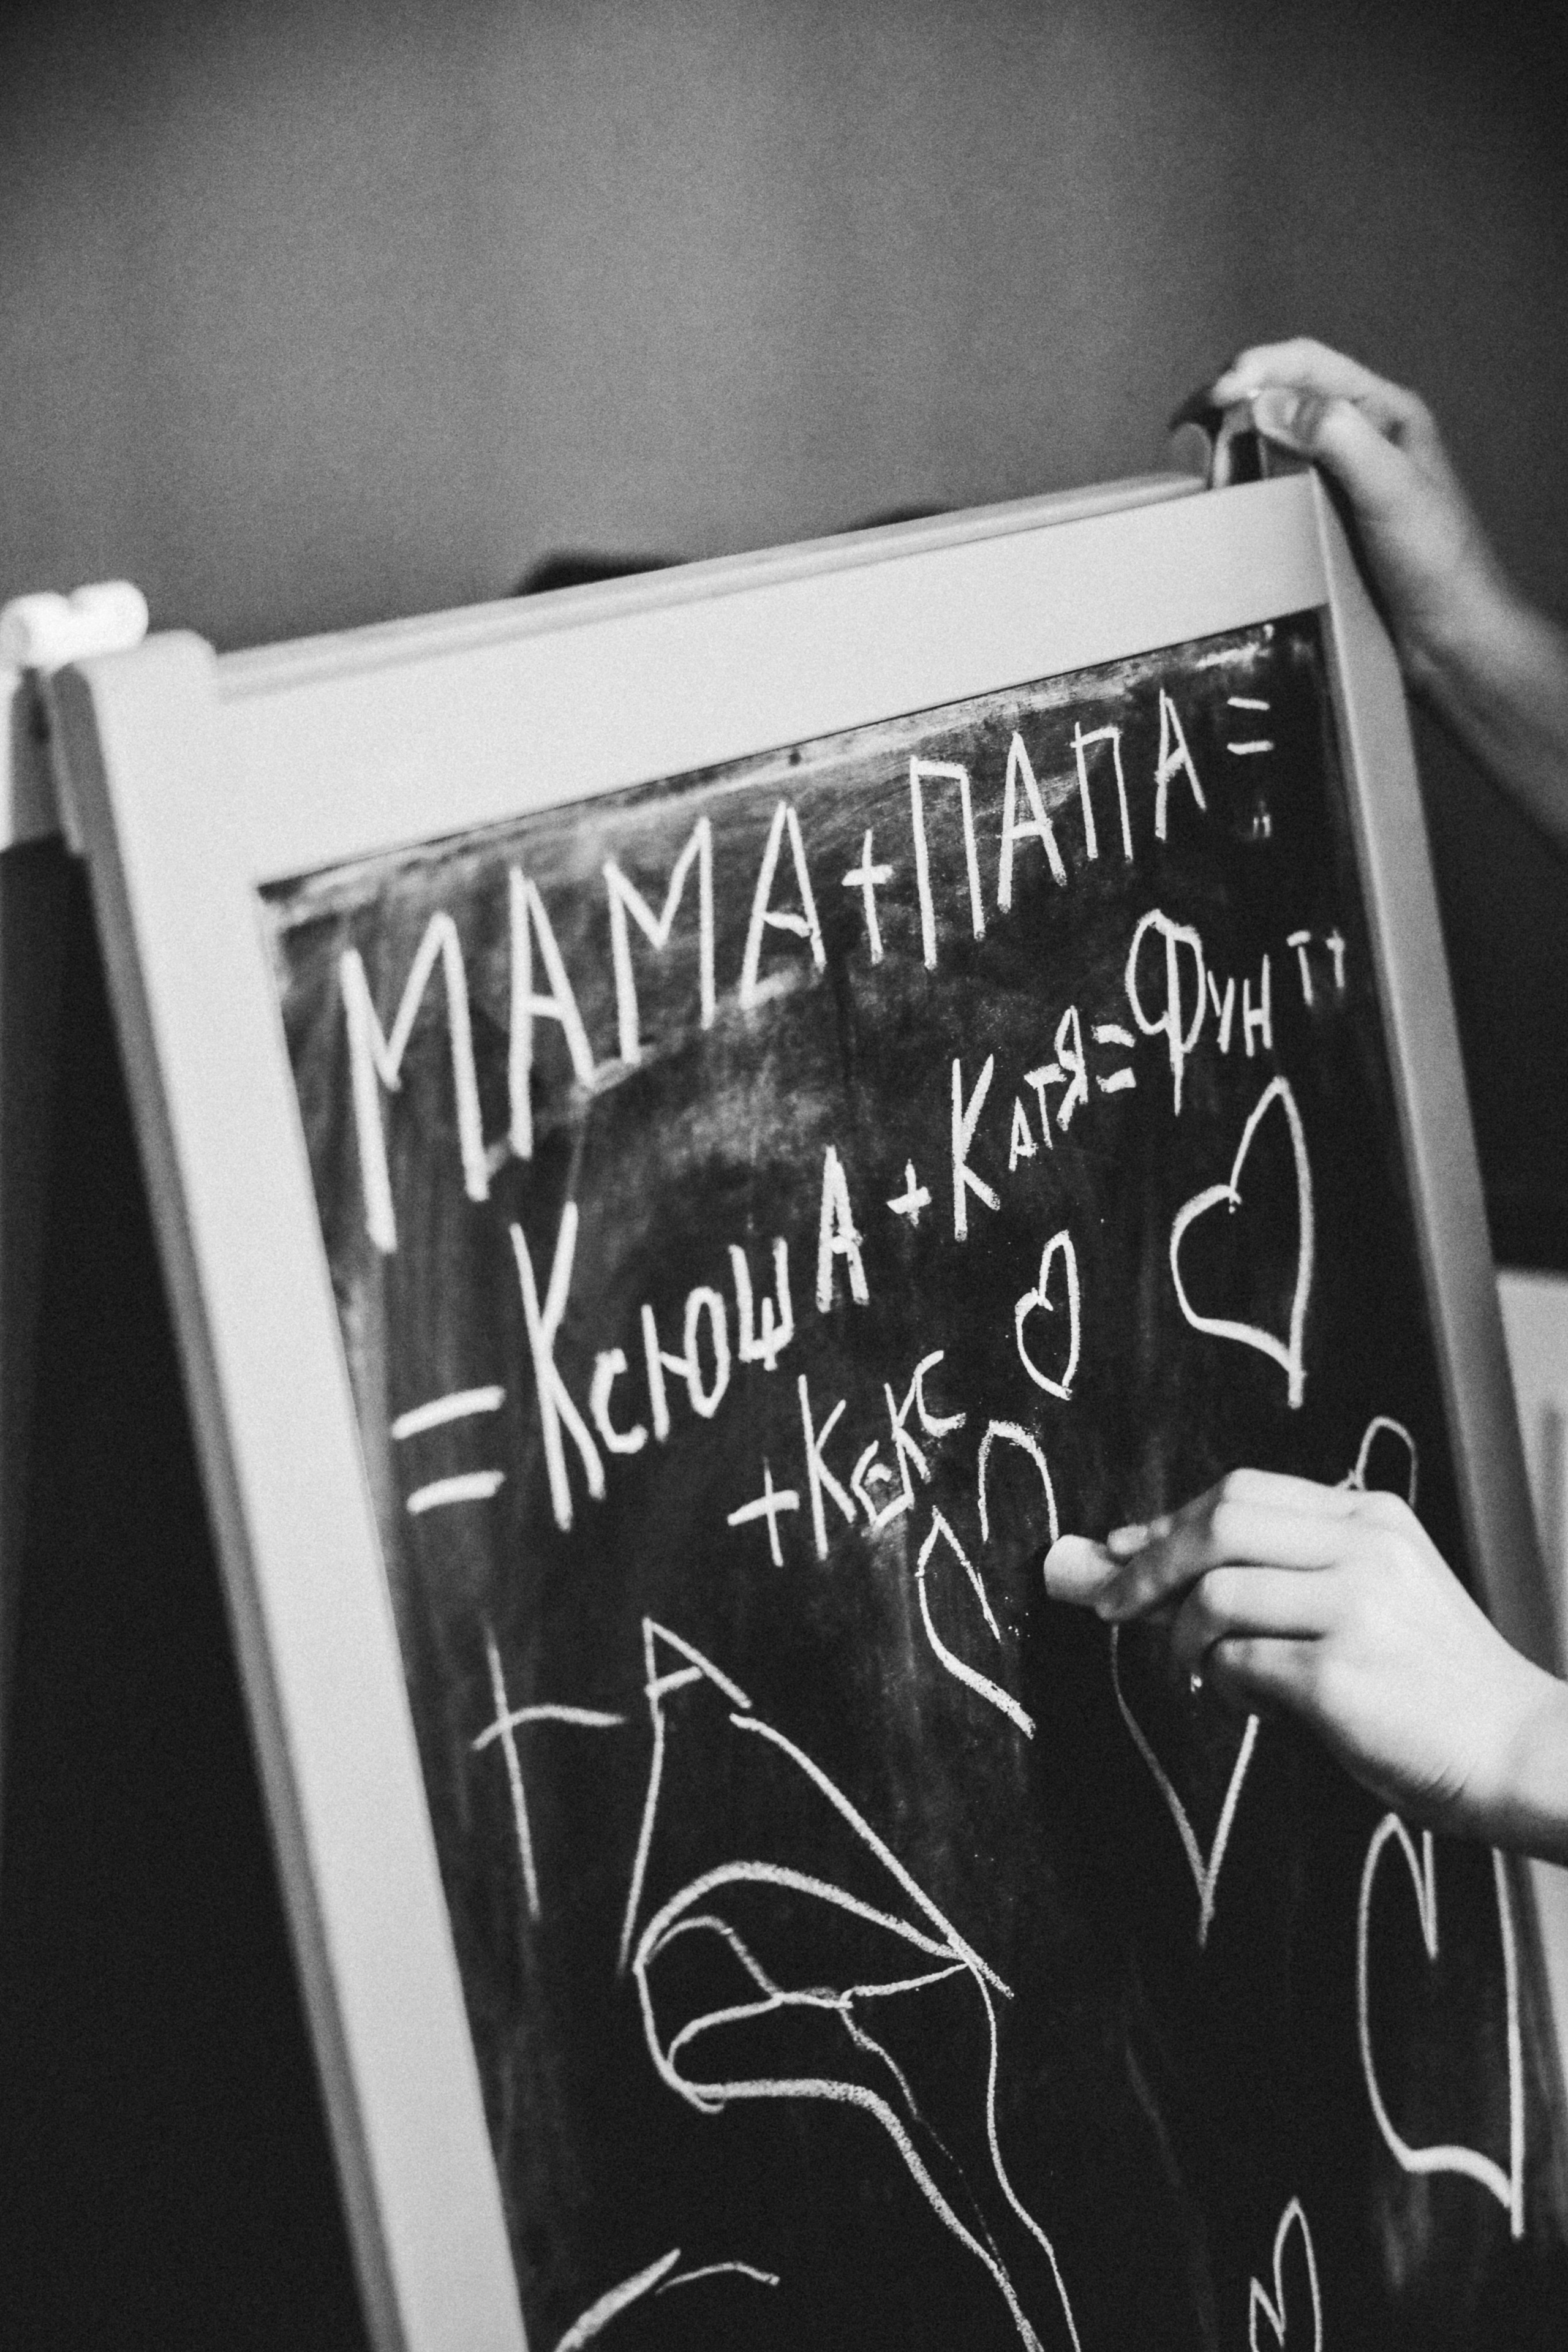 МАМА+ПАПА=
=КсюшА+Катя=Фунт+
+Кекс
+А